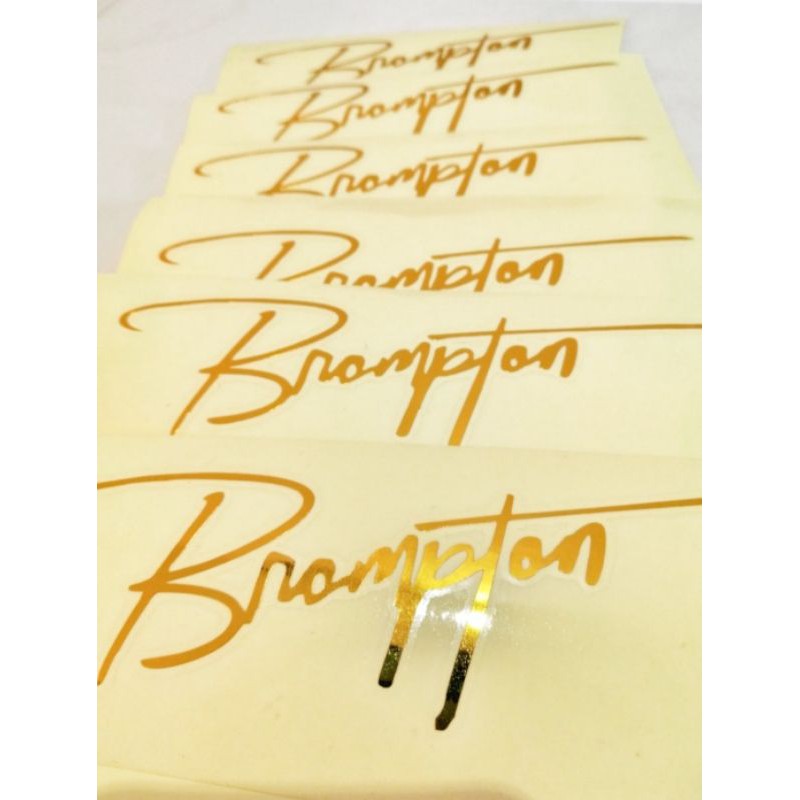 Brompton
Brompton
Brompton
Brompton
Brompton
Brompton